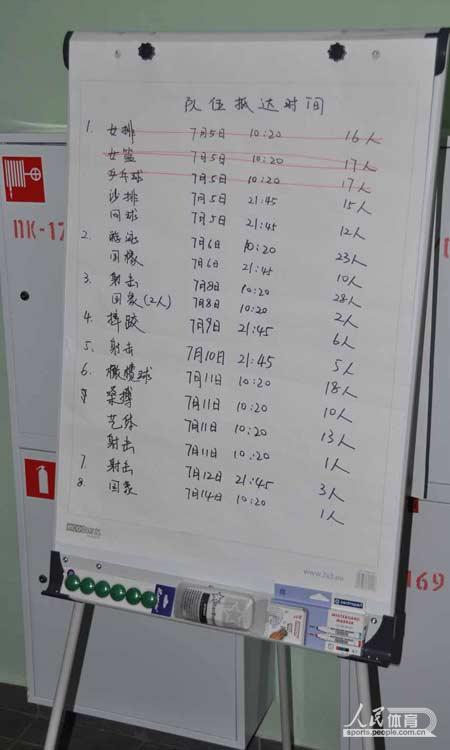 队伍抵达时间
1. 女排 7月5日 10:20 16人
女篮 7月5日 10:20 17人
乒乓球 7月5日 10:20 17人
沙排 7月5日 21:45 15人
网球 7月5日 21:45 12人
2. 游泳 7月6日 10:20 23人
国象 7月6日 21:45 10人
3. 射击 7月8日 10:20 28人
国象(2人) 7月8日 10:20 2人
4. 摔跤 7月9日 21:45 6人
5. 射击 7月10日 21:45 5人
6. 橄榄球 7月11日 10:20 18人
柔搏 7月11日 10:20 10人
艺体 7月11日 10:20 13人
射击 7月11日 10:20 1人
7. 射击 7月12日 21:45 3人
8. 国象 7月14日 10:20 1人
www.2x3.eu
ПК-1
169
centropen
WHITEBOARD MARKER
人民体育
sports.people.com.cn